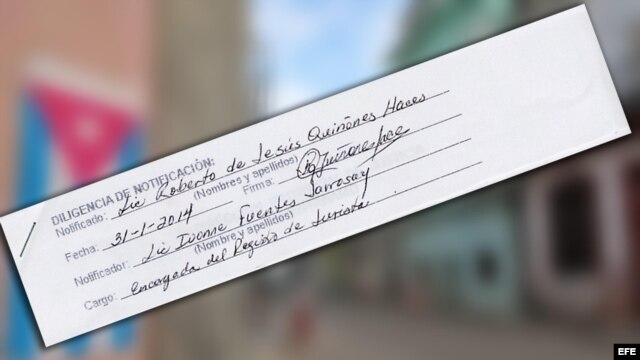 DILIGENCIA DE NOTIFICACIÓN:
Notificado: Lic Roberto de Jesús Quiñones Haces
(Nombres y apellidos)
Fecha: 31-1-2014 Firma:
Notificador: Lic Ivonne Fuentes Jarrosay
(Nombre y apellidos)
Cargo: Encargada del Registro de Jurista
EFE